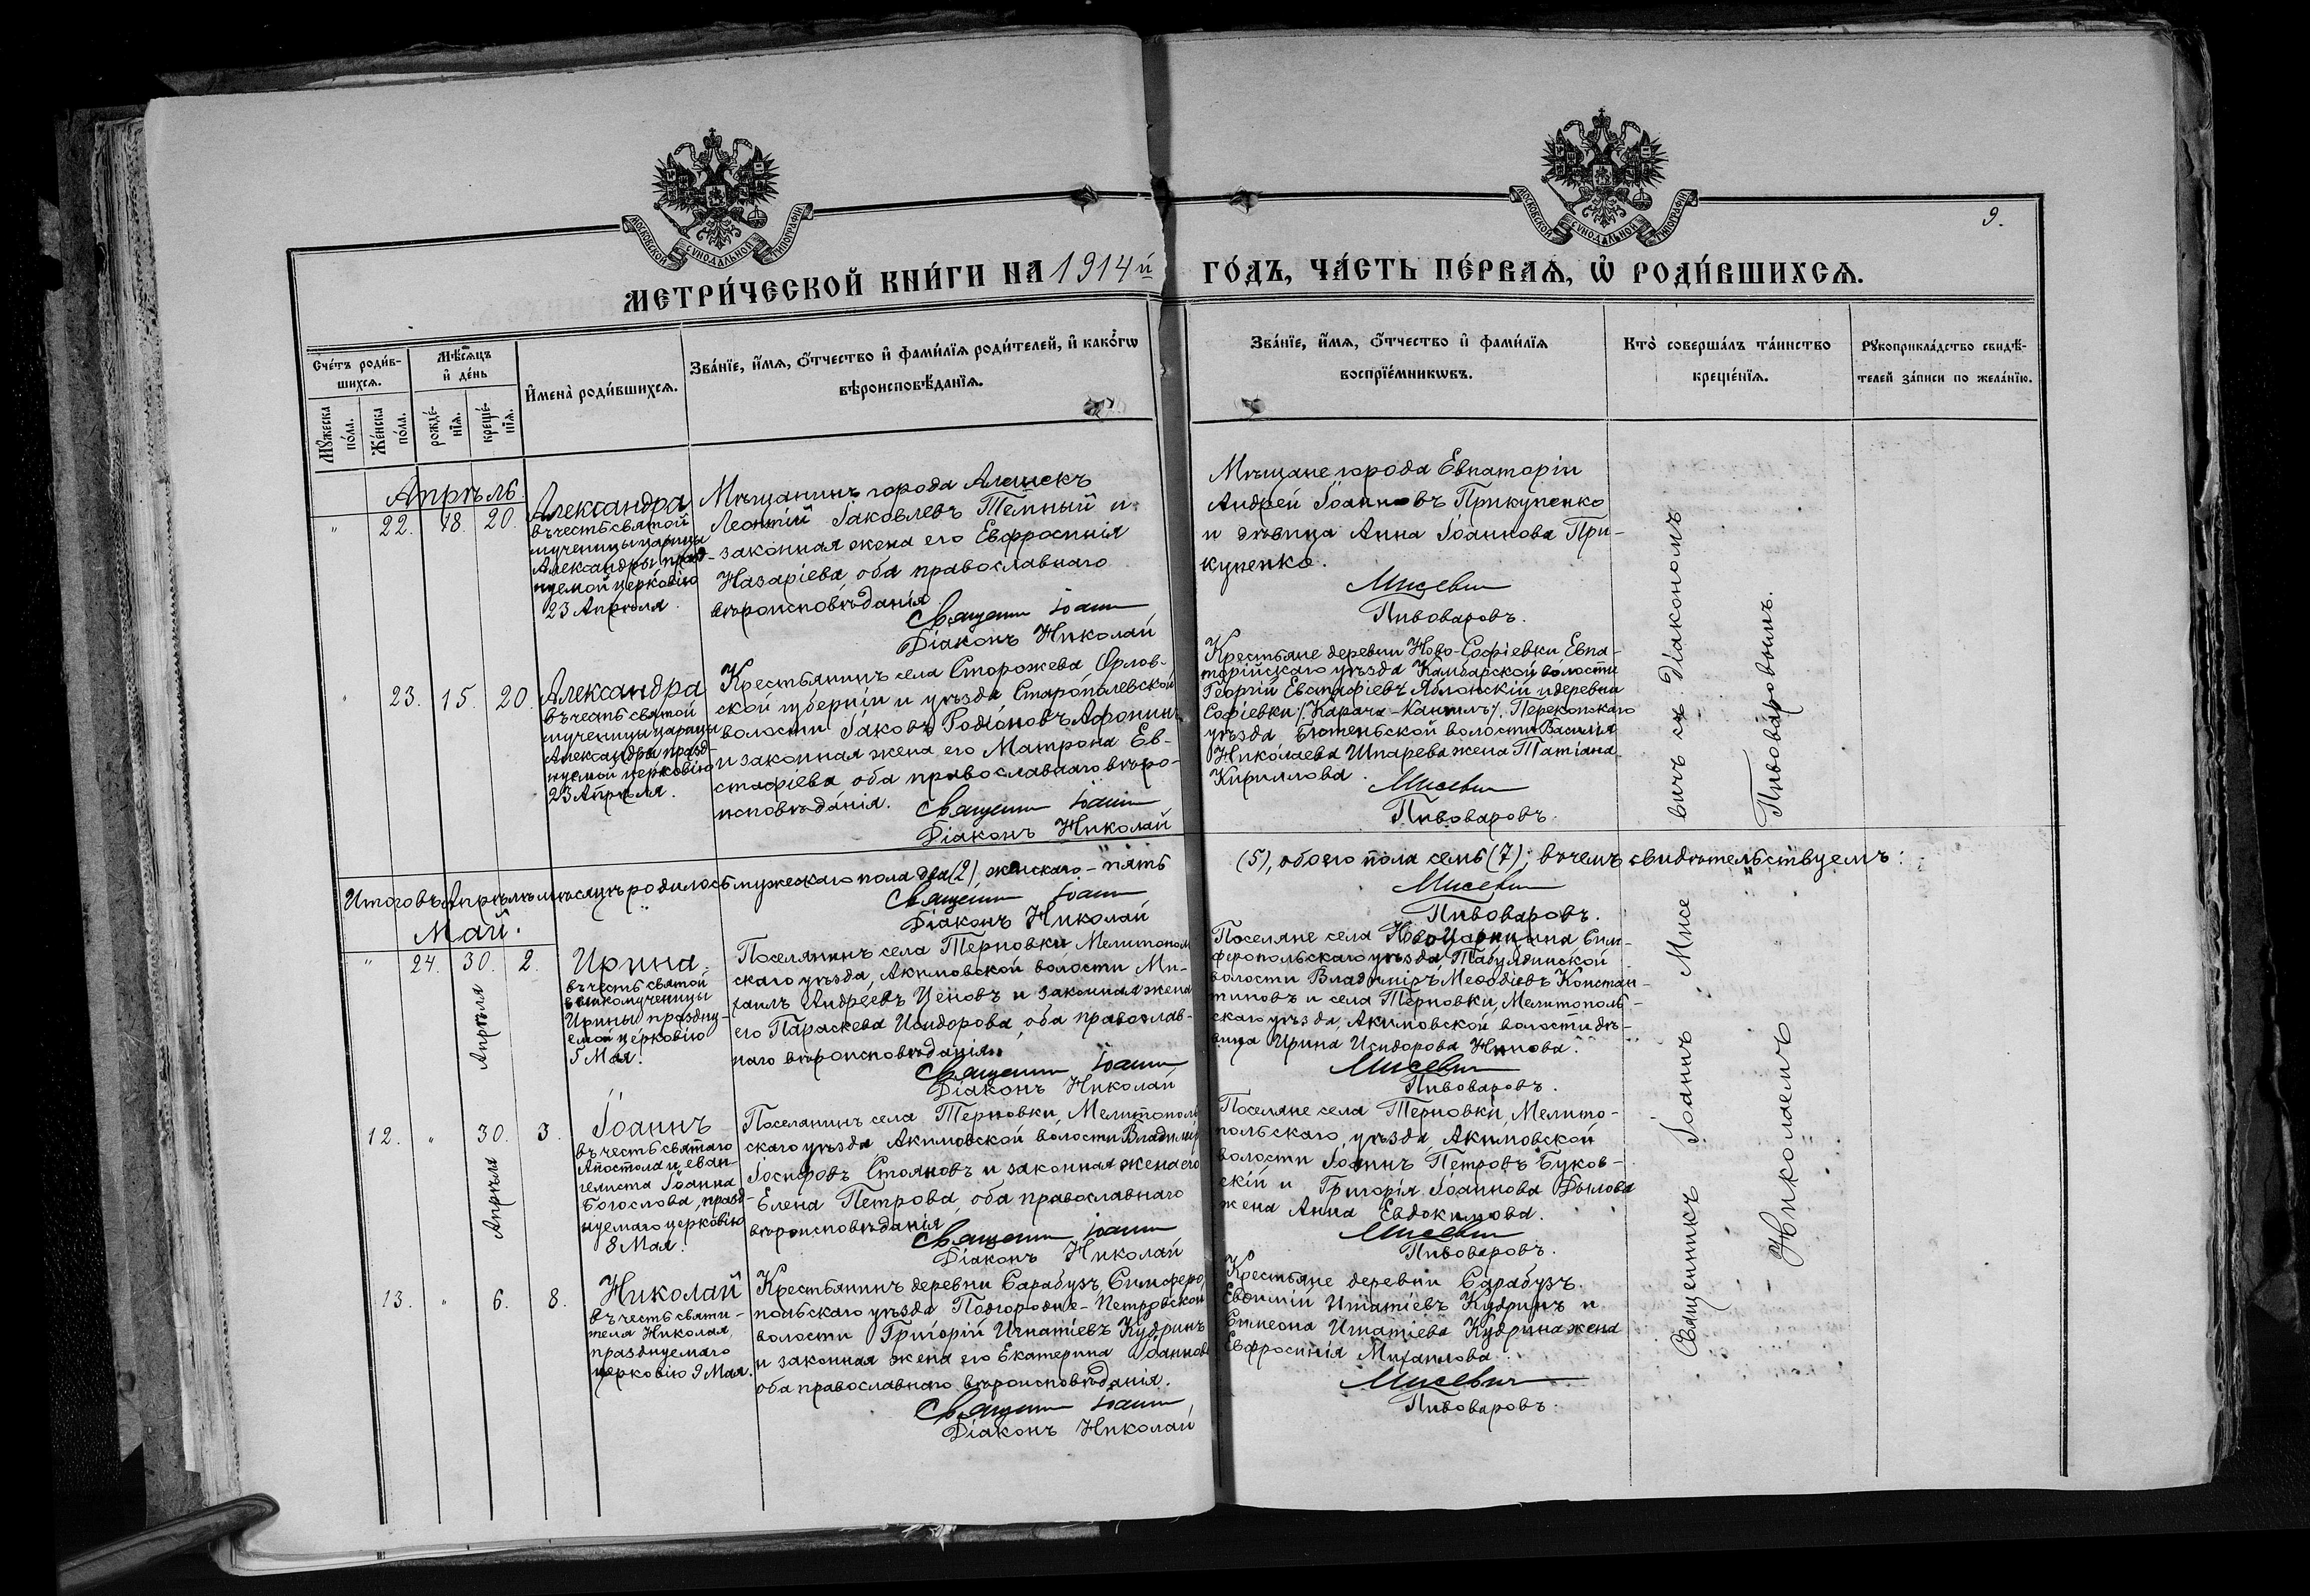 МОСКОВСКОЙ СѴНОДАЛЬНОЙ ТИПОГРАФІИ
МОСКОВСКОЙ СѴНОДАЛЬНОЙ ТИПОГРАФІИ
9.
МЕТРИ́ЧЕСКОЙ КНИ́ГИ НА 1914й ГО́ДЪ, ЧА́СТЬ ПЕ́РВАѦ, Ѡ҆ РОДИ́ВШИХСѦ.
Сче́тъ роди́в-
шихсѧ.
Мѣ́сѧцъ
и҆ де́нь
И҆мена̀ роди́вшихсѧ.
Зва́нїе, и҆́мѧ, ѻ҆́тчество и҆ фами́лїѧ роди́телей, и҆ како́гѡ
вѣроисповѣ́данїѧ.
Зва́нїе, и҆́мѧ, ѻ҆́тчество и҆ фами́лїѧ
воспрїе́мникѡвъ.
Кто̀ соверша́лъ та́инство
креще́нїѧ.
Рꙋкоприкла́дство свидѣ́-
телей за́писи по жела́нїю.
Мꙋ́жеска
по́ла.
Же́нска
по́ла.
рожде́-
нїѧ.
креще́-
нїѧ.
Апрѣль
" 22. 18. 20.
Александра
въ честь святой
мученицы царицы
Александры празд-
нуемой церковію
23 Апрѣля.
Мѣщанинъ города Алешекъ
Леонтій Іаковлевъ Темный и
законная жена его Евфросинія
Назаріева, оба православнаго
вѣроисповѣданія
Священн Іоанн
Діаконъ Николай
Мѣщане города Евпаторіи
Андрей Іоанновъ Прикупенко
и дѣвица Анна Іоаннова При-
купенко.
Мисевич
Пивоваровъ.
" 23. 15. 20.
Александра
въ честь святой
мученицы царицы
Александры празд-
нуемой церковію
23 Апрѣля.
Крестьянинъ села Сторожева Орлов-
ской губерніи и уѣзда Старополевской
волости Іаковъ Родіоновъ Афонинъ
и законная жена его Матрона Ев-
стафіева, оба православнаго вѣро-
исповѣданія.
Священн Іоанн
Діаконъ Николай
Крестьяне деревни Ново-Софіевки Евпа-
торійскаго уѣзда Камбарской волости
Георгій Евстафіевъ Яблонскій и деревни
Софіевки /Карача-Кангилъ/. Перекопскаго
уѣзда Бютеньской волости Василія
Николаева Шпарева жена Татіана
Кириллова.
Мисевич
Пивоваровъ.
Итого въ Апрѣлѣ мѣсяцѣ родилось мужескаго пола два (2) женскаго - пять (5), обоего пола семь (7); въ чемъ свидѣтельствуемъ:
Священн Іоанн Мисевич
Діаконъ Николай Пивоваровъ.
Май.
" 24. 30. 2.
Апрѣля
Ирина.
въ честь святой
великомученицы
Ирины праздну-
емой церковію
5 Мая.
Поселянинъ села Терновки Мелитополь
скаго уѣзда, Акимовской волости Ми-
хаилъ Андреевъ Ценовъ и законная жена
его Параскева Исидорова, оба православ-
наго вѣроисповѣданія.
Священн Іоанн
Діаконъ Николай
Поселяне села НовоЦарицына Сим-
феропольскаго уѣзда Табулдинской
волости Владиміръ Меѳодіевъ Констан-
тиновъ и села Терновки, Мелитополь-
скаго уѣзда, Акимовской волости дѣ-
вица Ирина Исидорова Нинова.
Мисевич
Пивоваровъ.
12. " 30. 3.
Апрѣля
Іоаннъ
въ честь святаго
Апостола и еван-
гелиста Іоанна
Богослова, празд-
нуемаго церковію
8 Мая.
Поселянинъ села Терновки, Мелитополь
скаго уѣзда Акимовской волости Владимір
Іосифовъ Стояновъ и законная жена его
Елена Петрова, оба православнаго
вѣроисповѣданія
Священн Іоанн
Діаконъ Николай
Поселяне села Терновки, Мелито-
польскаго, уѣзда, Акимовской
волости Іоаннъ Петровъ Буков-
скій и Григорія Іоаннова Дылова
жена Анна Евдокимова.
Мисевич
Пивоваровъ.
13. " 6. 8.
Николай
въ честь святи-
теля Николая,
празднуемаго
церковію 9 Мая.
Крестьянинъ деревни Сарабузъ Симферо
польскаго уѣзда Подгородне-Петровской
волости Григорій Игнатіевъ Кудринъ
и законная жена его Екатерина Іоаннова
оба православнаго вѣроисповѣданія.
Священн Іоанн
Діаконъ Николай
Крестьяне деревни Сарабузъ
Евѳимій Игнатіевъ Кудринъ и
Симеона Игнатіева Кудрина жена
Евфросинія Михаилова.
Мисевич
Пивоваровъ.
Священникъ Іоаннъ Мисевичъ съ Діакономъ
Николаемъ Пивоваровымъ.